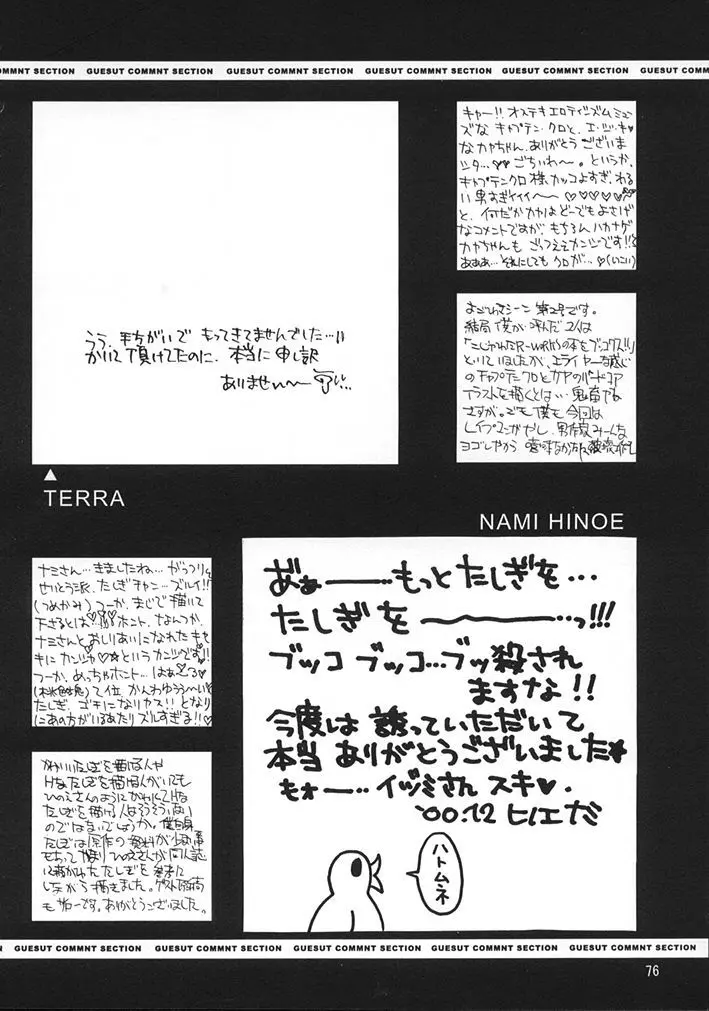 GUESUT COMMNT SECTION GUESUT COMMNT SECTION GUESUT COMMNT SECTION GUESUT COMMNT SECTION GUESUT COMM
うう、手ちがいで もってきてませんでした…!!
かいて頂けてたのに、本当に申し訳
ありませぃ〜
TERRA
キャー!! オステキエロティシズムミュー
ズな キャプテン・クロと、エ・ジ・キ♥
なカヤちゃん、ありがとうございま
シタ…♥♥ ごちぃわ〜。というか、
キャプテンクロ様カッコよすぎ、わる
い男すぎイイイ〜♡♡♡♡♡
と、何だかカヤはどーでもよさげ
なコメントですが、もちろんハカナゲ
カヤちゃんも ごっつええカンジです!!
あああ…それにしても クロが…♡(いこい)
よごれてシーン 第2号です。
結局僕が呼んだ2人は
の本を
といていましたが、エライヤーな感じ
のキャプテンクロとカヤのハードコア
イラストを描くとは… 鬼畜やな
さすが。でも僕も今回は
NAMI HINOE
ナミさん…きましたね…がっつりぃ
せいとう派、たしぎチャン…ズルイ!!
(つめかみ) つーか、まじで描いて
下さるとは…!! ホント、なんつか、
ナミさんとおしりあいになれたキセ
キにカンシャ♡☆というカンジです!!
つーか、めっちゃホント…はぁ〜
たしぎ、ゴチになりヤス!! となり
にあの方がいるあたりズルすぎる!!♡
かわいいたしぎを描ける人や
Hなたしぎを描ける人がいても
ひのえさんのようにかわいくてHな
たしぎを描ける人はそうそういない
のではないでしょうか。僕自身
たしぎは原作の資料が
ひのえさんが同人誌
に描かれたたしぎを参考に
しながら描きました。ゲスト原稿
もサイコーです。ありがとうございました。
あぁ――…もっと たしぎを…
たしぎを 〜〜…っ!!!
ブッコ ブッコ…ブッ殺され
ますな!!
今度は 誘っていただいて
本当 ありがとうございました★
もォー…イヅミさん スキ♥.
'00.12 ヒノエナミ
ハトムネ
GUESUT COMMNT SECTION GUESUT COMMNT SECTION GUESUT COMMNT SECTION GUESUT COMMNT SECTION GUESUT COMMNT SECTION
76